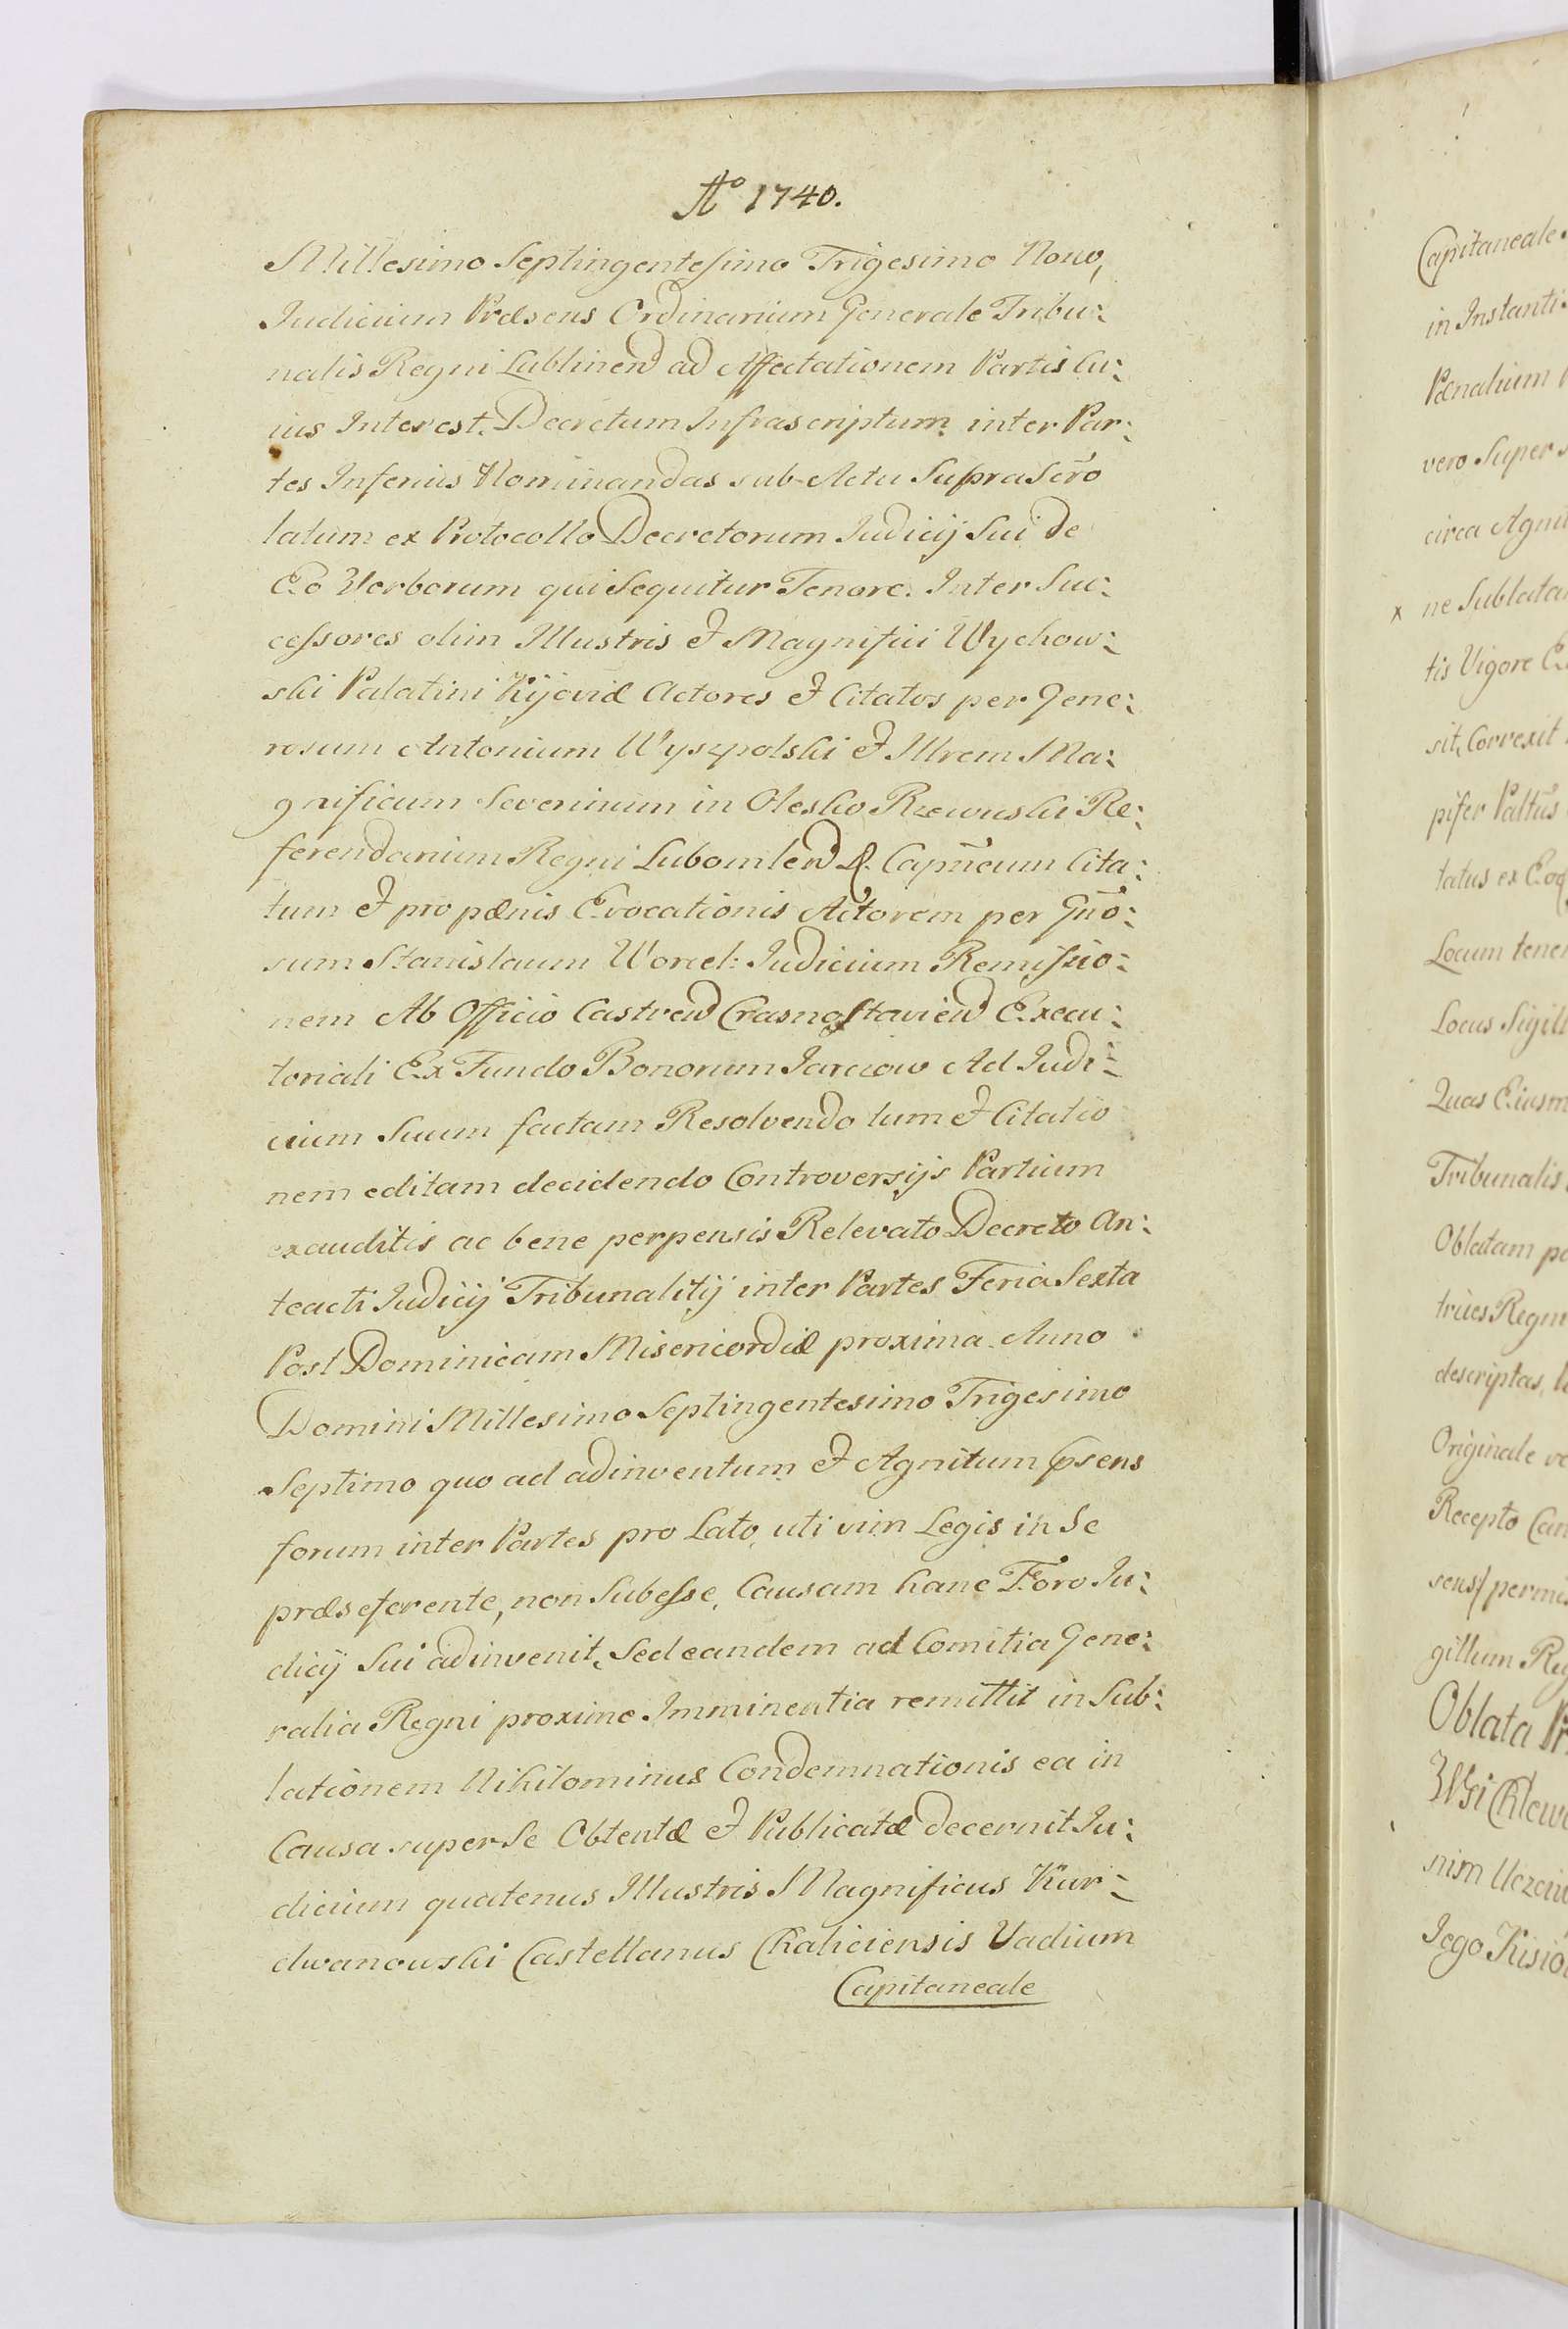 Aº 1740.
Millesimo Septingentesimo Trigesimo Nono,
Judicium Præsens Ordinarium Generale Tribu:
nalis Regni Lublinen ad Affectationem Partis Cu:
ius Interest. Decretum Infrascriptum inter Par:
tes Inferius Nominandas sub Actu Suprascro
latum ex Protocollo Decretorum Judicij Sui de
Eo Verborum qui Sequitur Tenore. Inter Suc:
cessores olim Illustris et Magnifici Wychow:
ski Palatini Kijoviæ Actores et Citatos per Gene:
rosum Antonium Wyszpolski et Illrem Ma:
gnificum Severinum in Olesko Rzewuski Re:
ferendarium Regni Lubomlen & Capneum Cita:
tum et pro pænis Evocationis Actorem per Gno:
sum Stanislaum Worcel: Judicium Remissio:
nem Ab Officio Castren Crasnostavien Execu:
toriali Ex Fundo Bonorum Jarczow Ad Judi:
cium Suum factam Resolvendo tum et Citatio
nem editam decidendo Controversijs Partium
exauditis ac bene perpensis Relevato Decreto An:
teacti Judicij Tribunalitij inter Partes Feria Sexta
Post Dominicam Misericordiæ proxima Anno
Domini Millesimo Septingentesimo Trigesimo
Septimo quo ad adinventum et Agnitum psens
forum inter Partes pro Lato, uti vim Legis in Se
præseferente, non Subesse, Causam hanc Foro Ju:
dicij Sui adinvenit, Sed eandem ad Comitia Gene:
ralia Regni proxime Imminentia remittit in Sub:
lationem Nihilominus Condemnationis ea in
Causa super Se Obtentæ et Publicatæ decernit Ju:
dicium quatenus Illustris Magnificus Kur:
dwanowski Castellanus Chaliciensis Vadium
Capitaneale
Capitaneale
in Instanti
Pænalium
vero Super
circa Agni
x ne Sublata
tis Vigore
sit, Correxit
pifer Paltus
tatus ex
Locum tenen
Locus Sigill
Quas Eiusm
Tribunalis
Oblatam pe
trices Regni
descriptas,
Originale ve
Recepto Can
sens/ permi
gillum Reg
Oblata Pr
nim Uczin
Jego Kisio